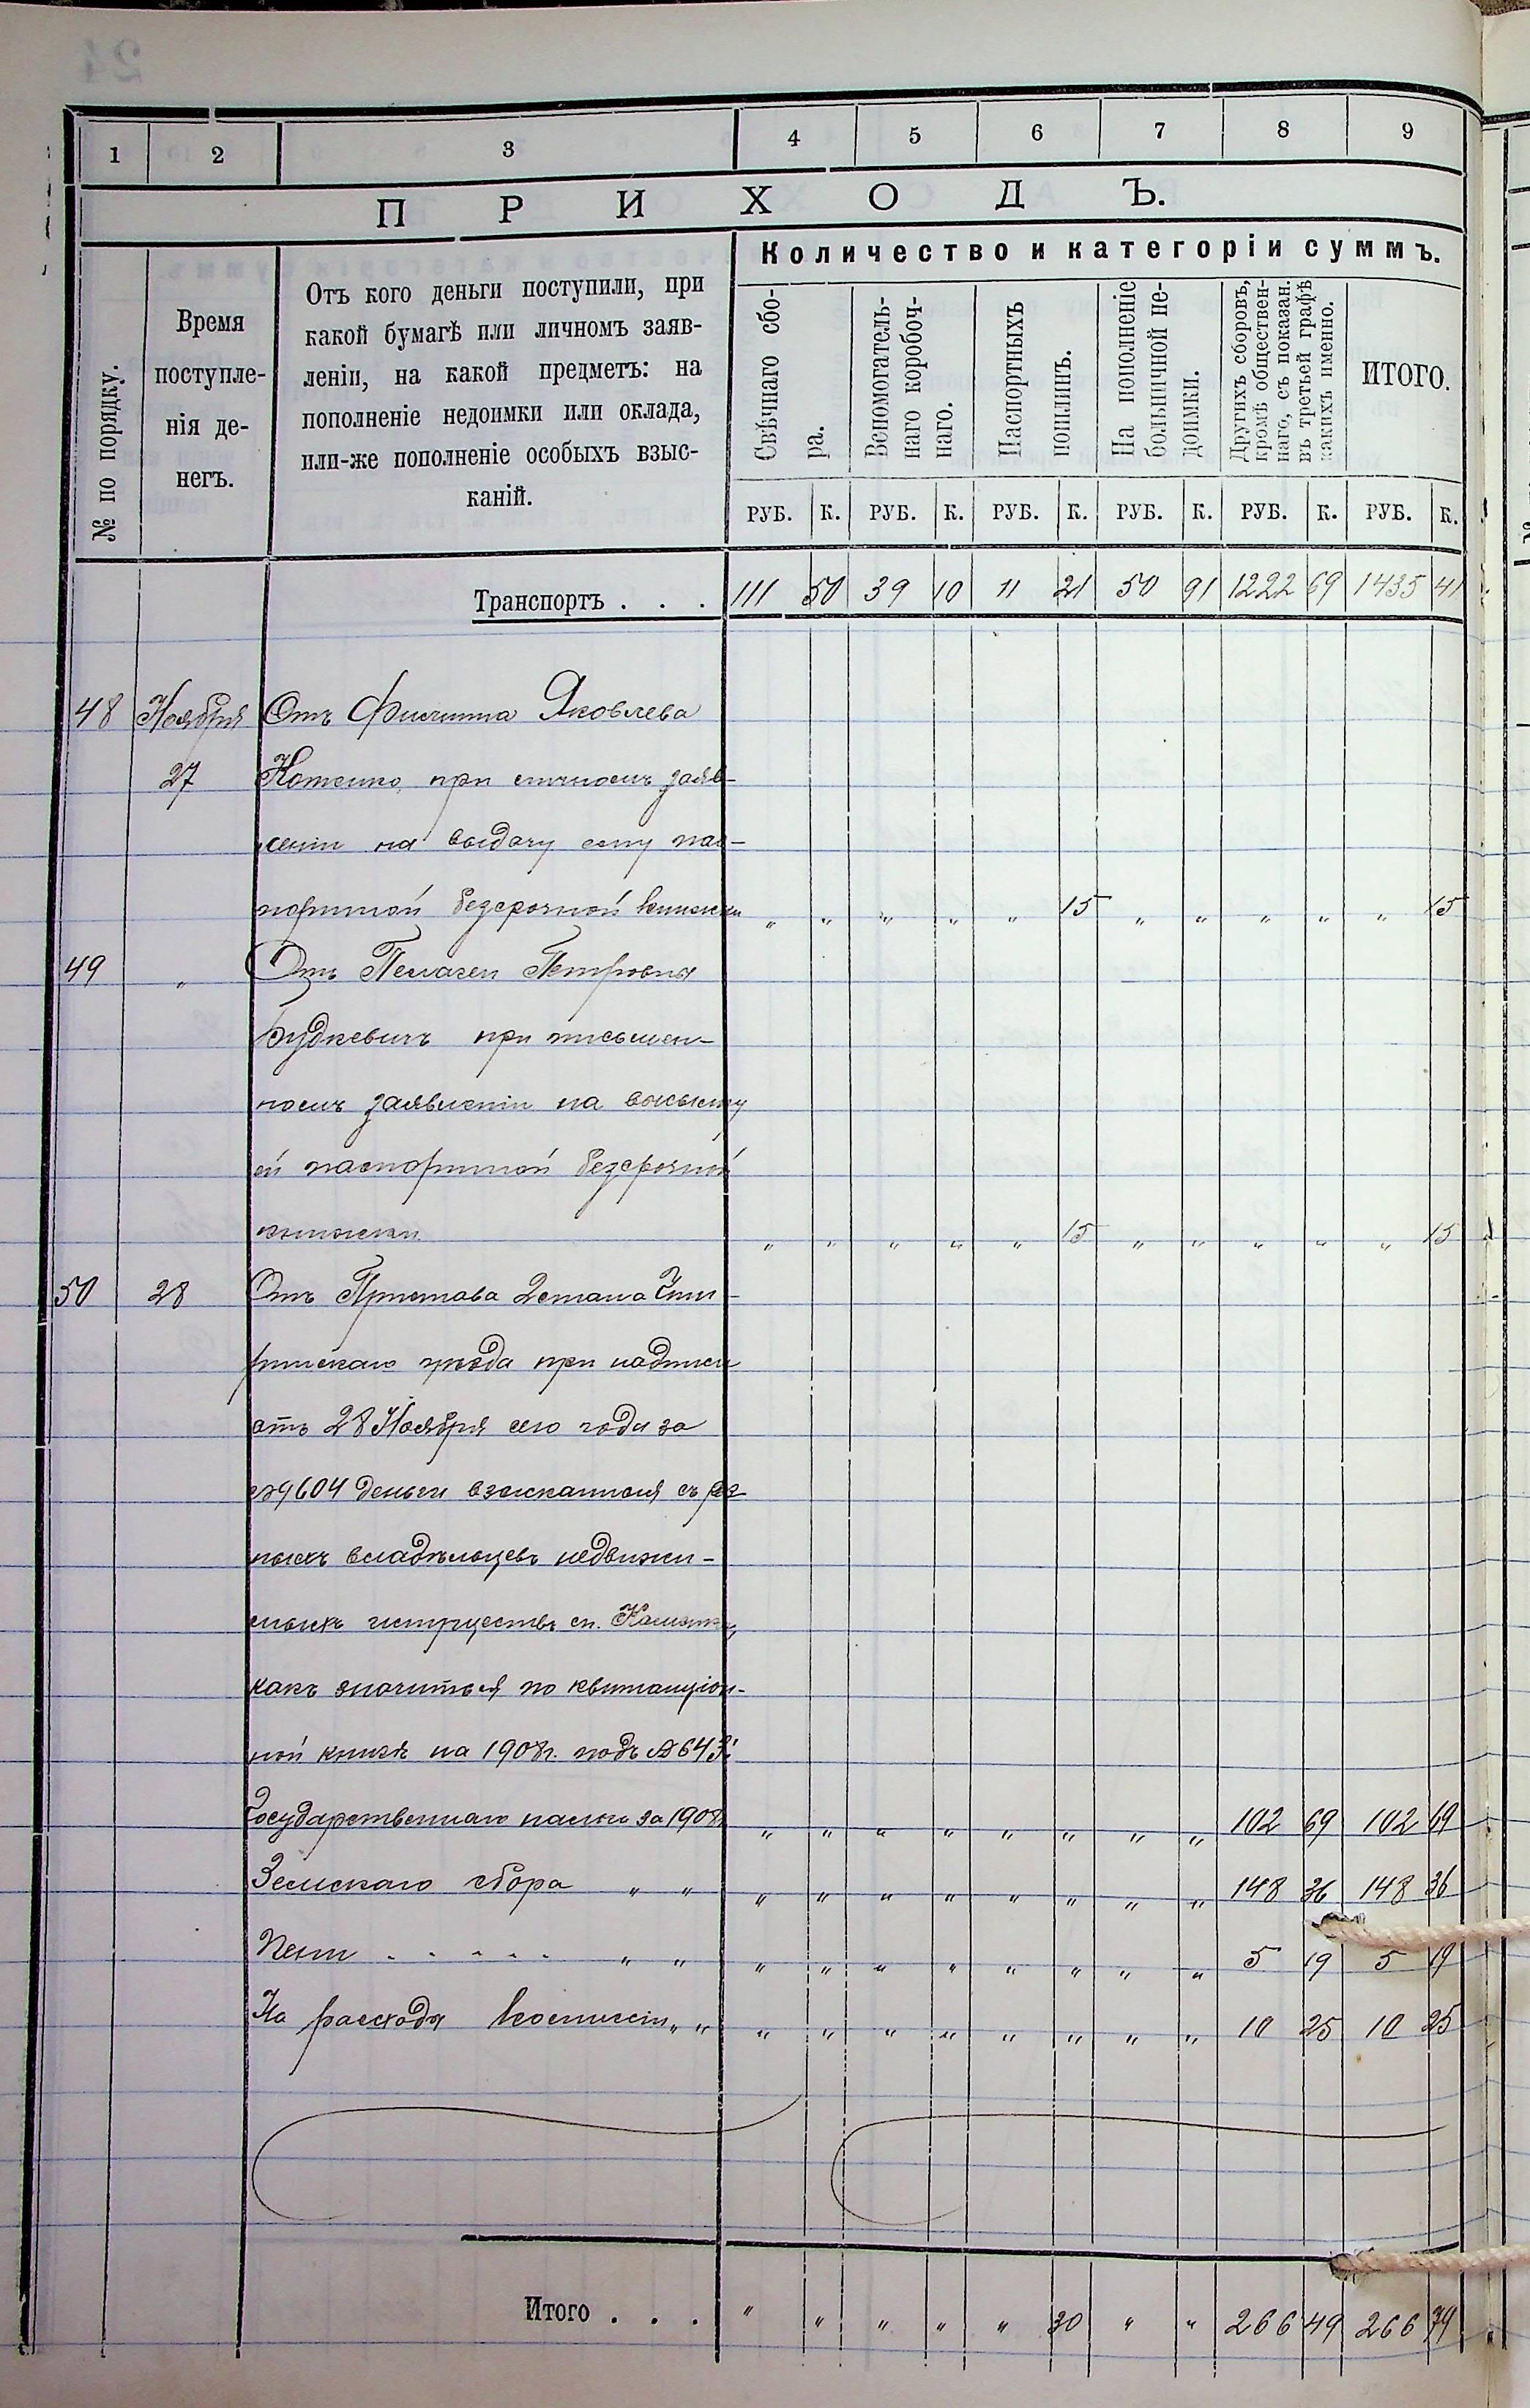 24
1 2 3 4 5 6 7 8 9
ПРИХОДЪ.
№ по порядку.
Время
поступле-
нія де-
негъ.
Отъ кого деньги поступили, при
какой бумагѣ или личномъ заяв-
леніи, на какой предметъ: на
пополненіе недоимки или оклада,
или-же пополненіе особыхъ взыс-
каній.
Количество и категоріи суммъ.
Свѣчнаго сбо-
ра.
Вспомогатель-
наго коробоч-
наго.
Паспортныхъ
пошлинъ.
На пополненіе
больничной не-
доимки.
Другихъ сборовъ,
кромѣ обществен-
наго, съ показан.
въ третьей графѣ
какихъ именно.
ИТОГО.
РУБ. К. РУБ. К. РУБ. К. РУБ. К. РУБ. К. РУБ. К.
Транспортъ . . . 111 50 39 10 11 21 50 91 1222 69 1435 41
48 Ноября Отъ Яковлева
27 при личномъ заяв-
леніи на выдачу ему пас-
портной безсрочной книжки " " " " " 15 " " " " " 15
49 " Отъ Пелагеи Петровны
Будкевичъ при письмен-
номъ заявленіи на высылку
ей паспортной безсрочной
книжки " " " " " 15 " " " " " 15
50 28 Отъ Пристава 2 стана Чиги-
ринскаго уѣзда при надписи
отъ 28 Ноября сего года за
№ 9604 деньги взысканныя съ раз
ныхъ владѣльцевъ недвижи-
мыхъ имуществъ м. Каменки,
какъ значится по квитанціон-
ной книгѣ на 1908 г. подъ № 643:
Государственнаго налога за 1908 г. " " " " " " " " 102 69 102 69
Земскаго сбора " " " " " " " " " " 148 36 148 36
Пени - - - - - " " " " " " " " " " 5 19 5 19
На расходы Коммисіи " " " " " " " " " " 10 25 10 25
Итого . . . " " " " " 30 " " 266 49 266 79